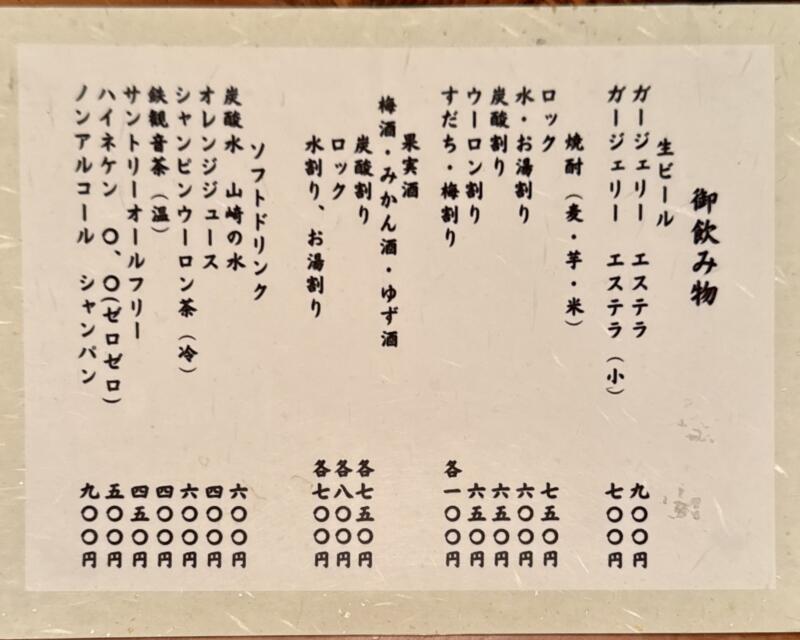 御飲み物
生ビール
ガージェリー エステラ 九〇〇円
ガージェリー エステラ（小） 七〇〇円
焼酎（麦・芋・米）
ロック 七五〇円
水・お湯割り 六〇〇円
炭酸割り 六五〇円
ウーロン割り 六五〇円
すだち・梅割り 各一〇〇円
果実酒
梅酒・みかん酒・ゆず酒
炭酸割り 各七五〇円
ロック 各八〇〇円
水割り、お湯割り 各七〇〇円
ソフトドリンク
炭酸水 山崎の水 六〇〇円
オレンジジュース 四〇〇円
シャンピンウーロン茶（冷） 六〇〇円
鉄観音茶（温） 四〇〇円
サントリーオールフリー 四五〇円
ハイネケン 〇、〇(ゼロゼロ) 五〇〇円
ノンアルコール シャンパン 九〇〇円